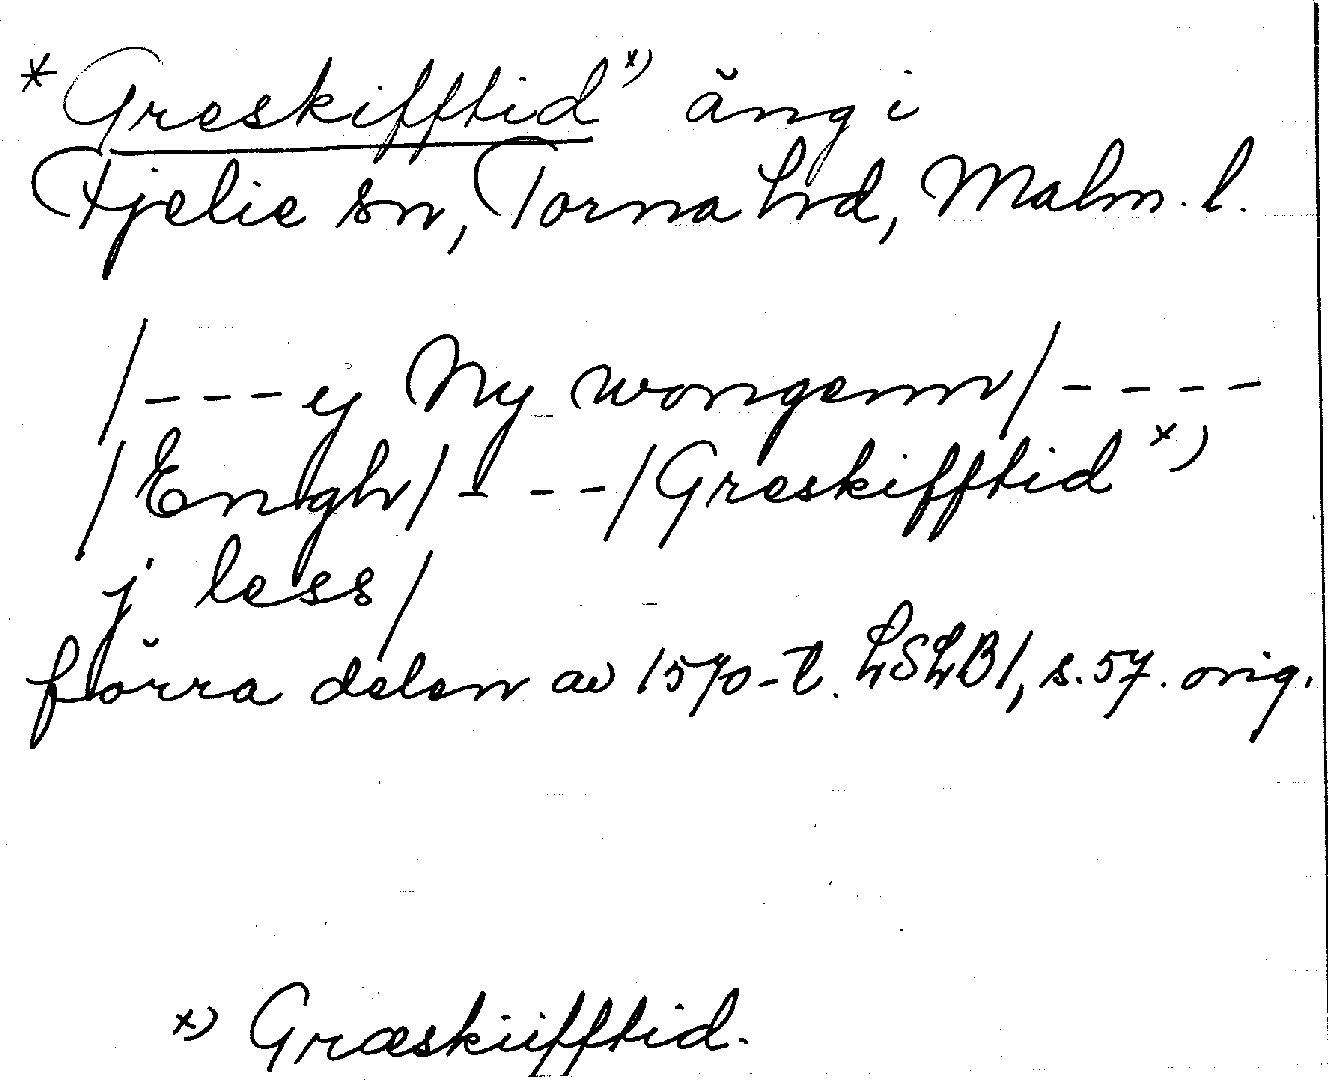 *Greskifftid x) äng i
Fjelie sn, Torna hrd, Malm. l.
/---ij Ny wongenn/----
/Engh/---/Greskifftid x)
j less/
förra delen av 1570-t. LSLB1, s. 57. orig.
x) Græskiifftid.